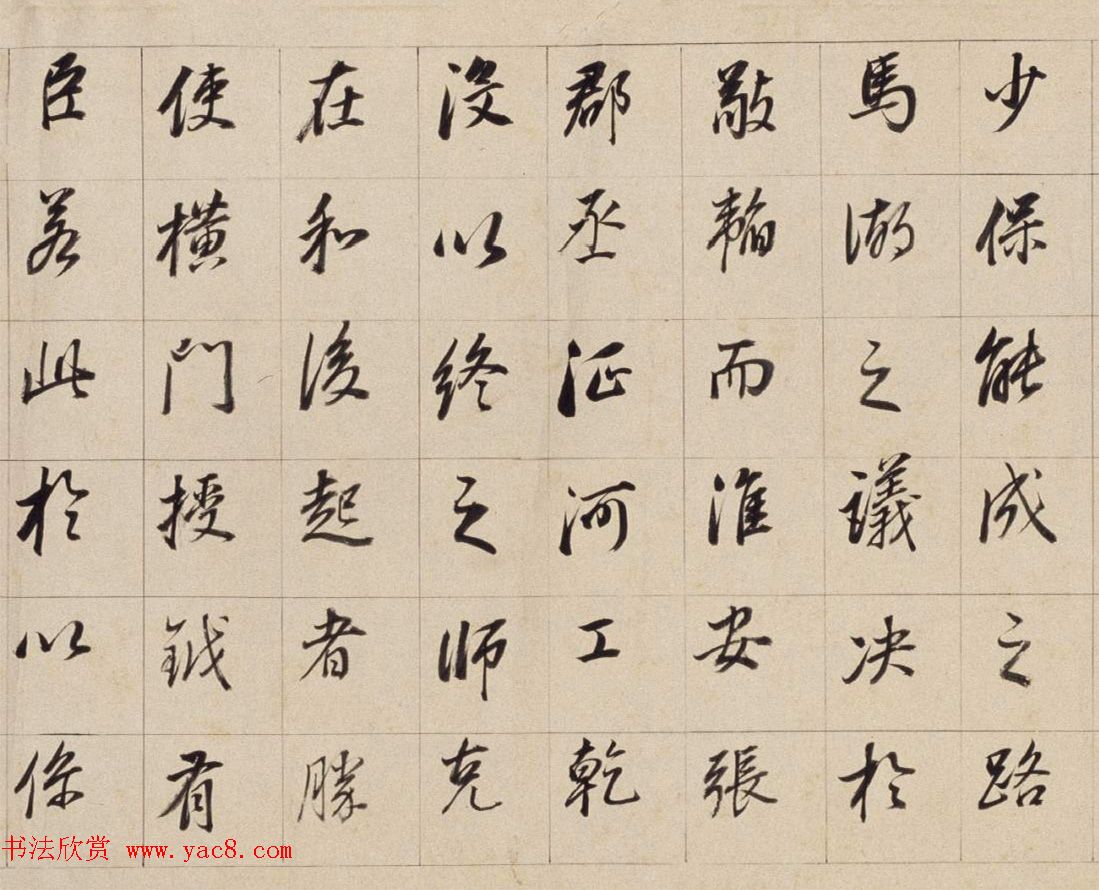 少保能成之路
馬湖之議决於
而淮安張
郡丞征河工乾
没以終之師克
在和後起者勝
使橫門授鉞有
臣若此於以
书法欣赏 www.yac8.com